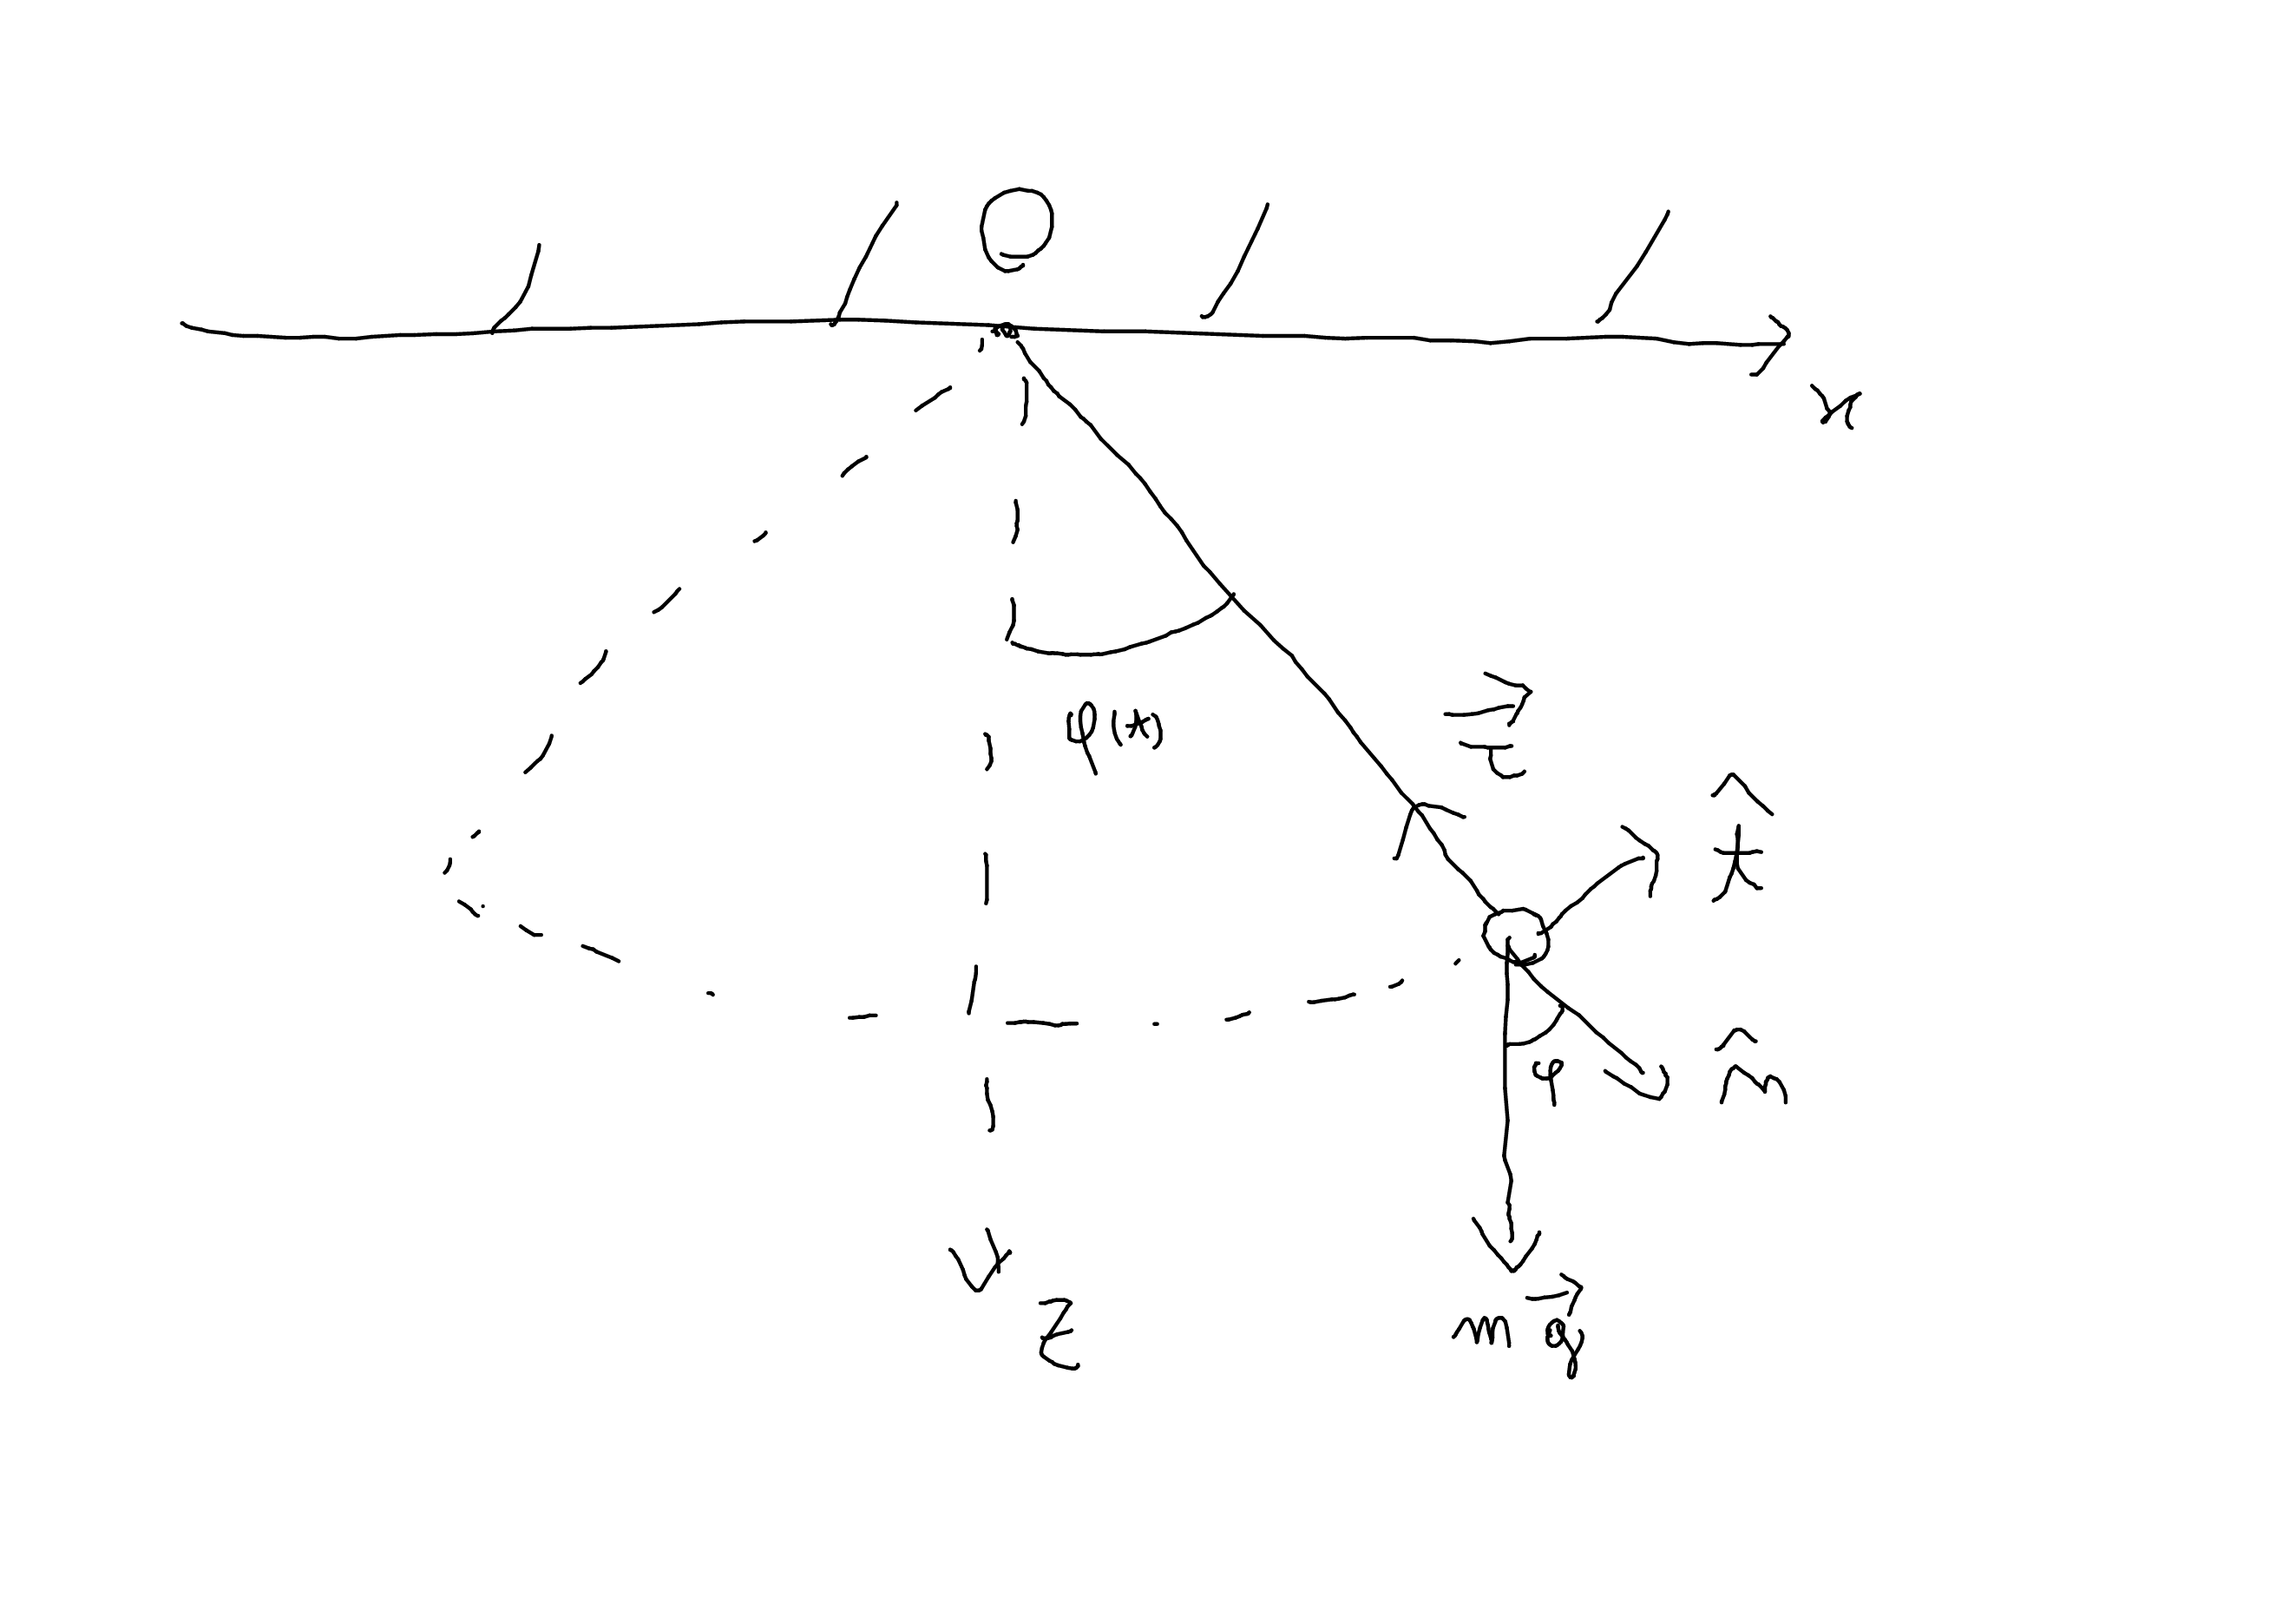 O
x
φ(t)
$\vec{\tau}$
$\hat{t}$
$\hat{n}$
φ
$m\vec{g}$
z